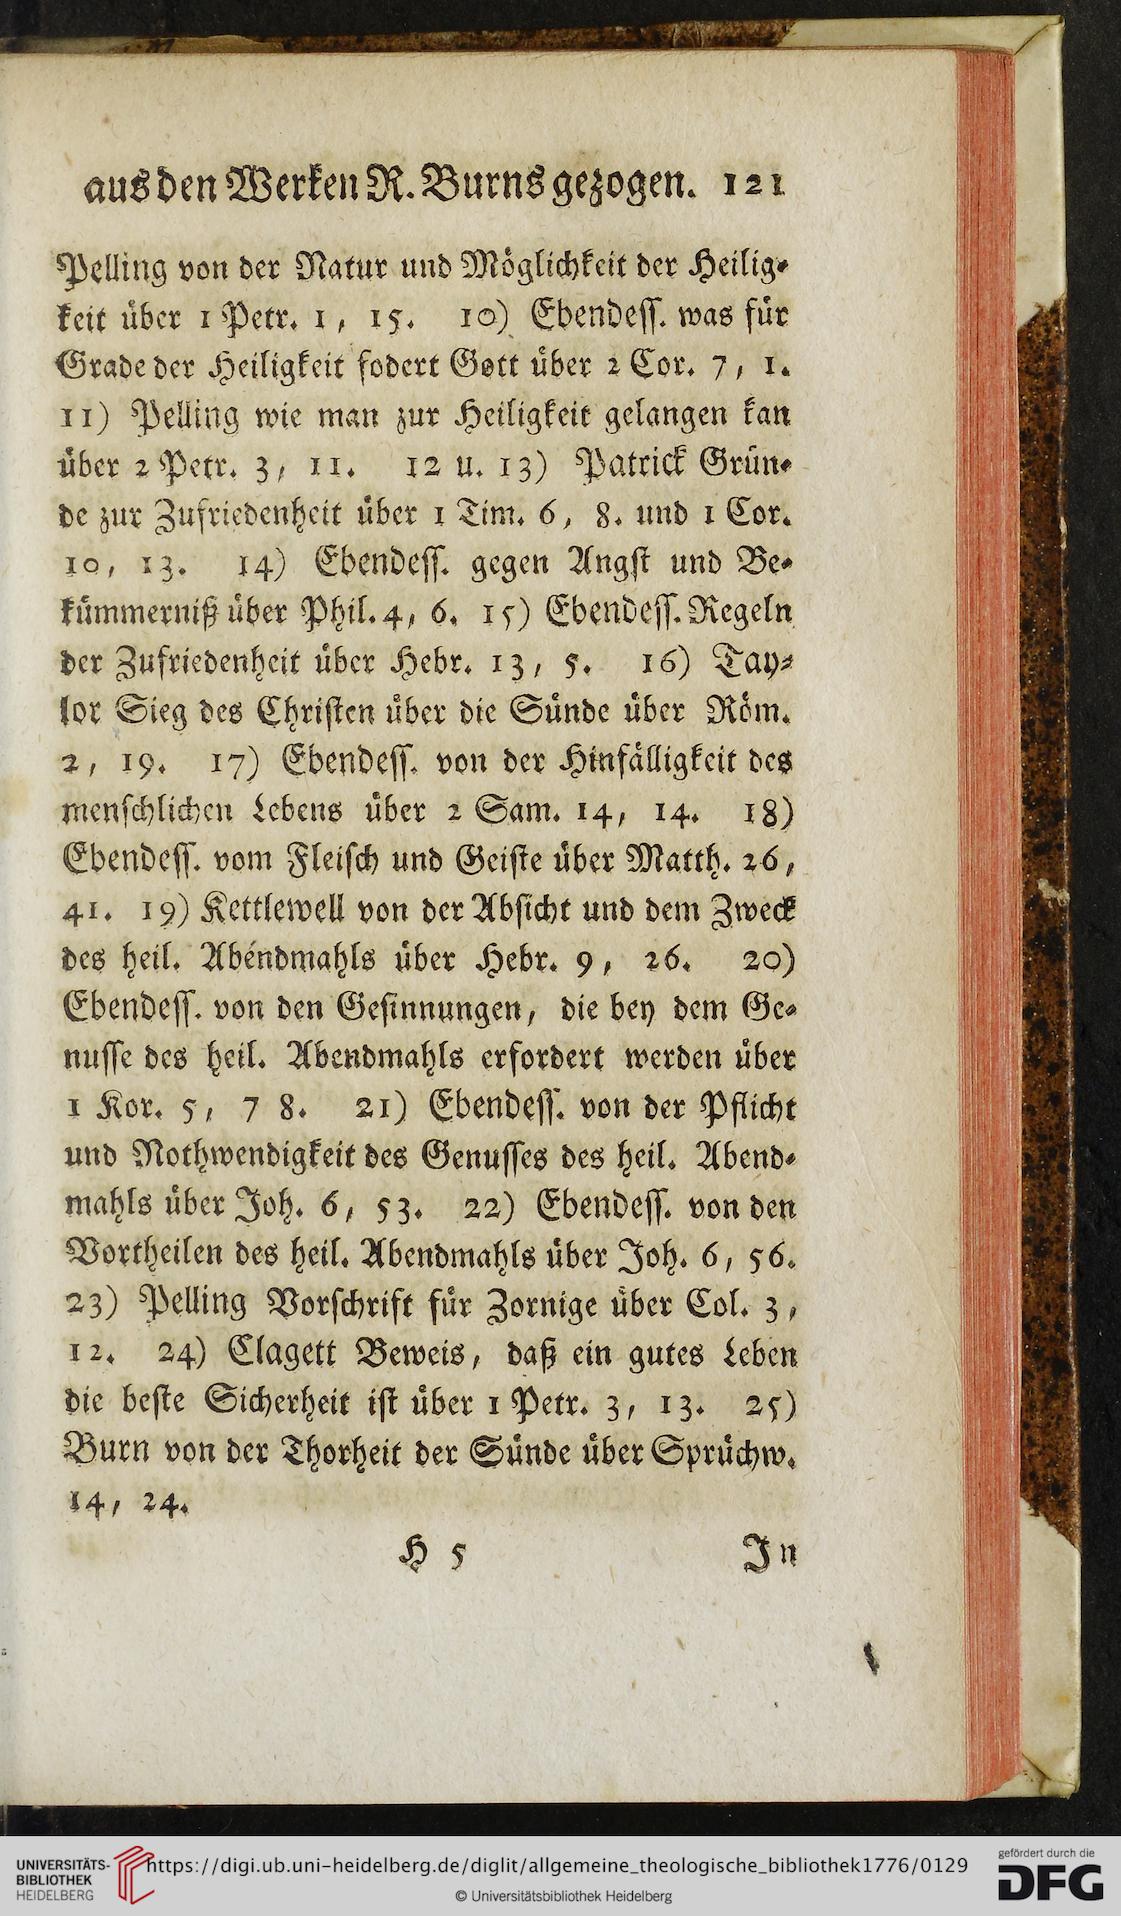 aus den Werken R. Burns gezogen. 121
Pelling von der Natur und Möglichkeit der Heilig-
keit über 1 Petr. 1, 15. 10) Ebendess. was für
Grade der Heiligkeit fodert Gott über 2 Cor. 7, 1.
11) Pelling wie man zur Heiligkeit gelangen kan
über 2 Petr. 3, 11. 12 u. 13) Patrick Grün-
de zur Zufriedenheit über 1 Tim. 6, 8. und 1 Cor.
10, 13. 14) Ebendess. gegen Angst und Be-
kümmerniß über Phil. 4, 6. 15) Ebendess. Regeln
der Zufriedenheit über Hebr. 13, 5. 16) Tay-
lor Sieg des Christen über die Sünde über Röm.
2, 19. 17) Ebendess. von der Hinfälligkeit des
menschlichen Lebens über 2 Sam. 14, 14. 18)
Ebendess. vom Fleisch und Geiste über Matth. 26,
41. 19) Kettlewell von der Absicht und dem Zweck
des heil. Abendmahls über Hebr. 9, 26. 20)
Ebendess. von den Gesinnungen, die bey dem Ge-
nusse des heil. Abendmahls erfordert werden über
1 Kor. 5, 7 8. 21) Ebendess. von der Pflicht
und Nothwendigkeit des Genusses des heil. Abend-
mahls über Joh. 6, 53. 22) Ebendess. von den
Vortheilen des heil. Abendmahls über Joh. 6, 56.
23) Pelling Vorschrift für Zornige über Col. 3,
12. 24) Clagett Beweis, daß ein gutes Leben
die beste Sicherheit ist über 1 Petr. 3, 13. 25)
Burn von der Thorheit der Sünde über Sprüchw.
14, 24.
H 5 In
UNIVERSITÄTS-
BIBLIOTHEK
HEIDELBERG
https://digi.ub.uni-heidelberg.de/diglit/allgemeine_theologische_bibliothek1776/0129
© Universitätsbibliothek Heidelberg
gefördert durch die
DFG